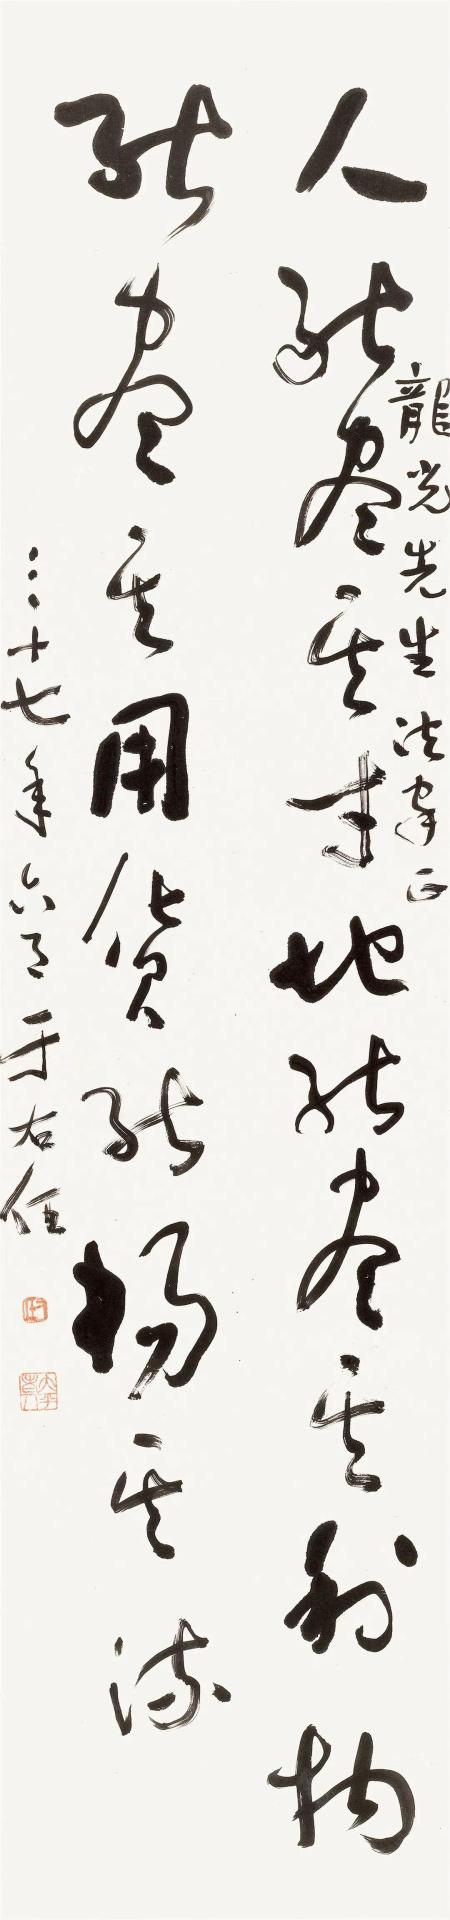 龍光先生法家正
人能盡其才地能盡其利物
能盡其用貨能暢其流
三十七年六月于右任